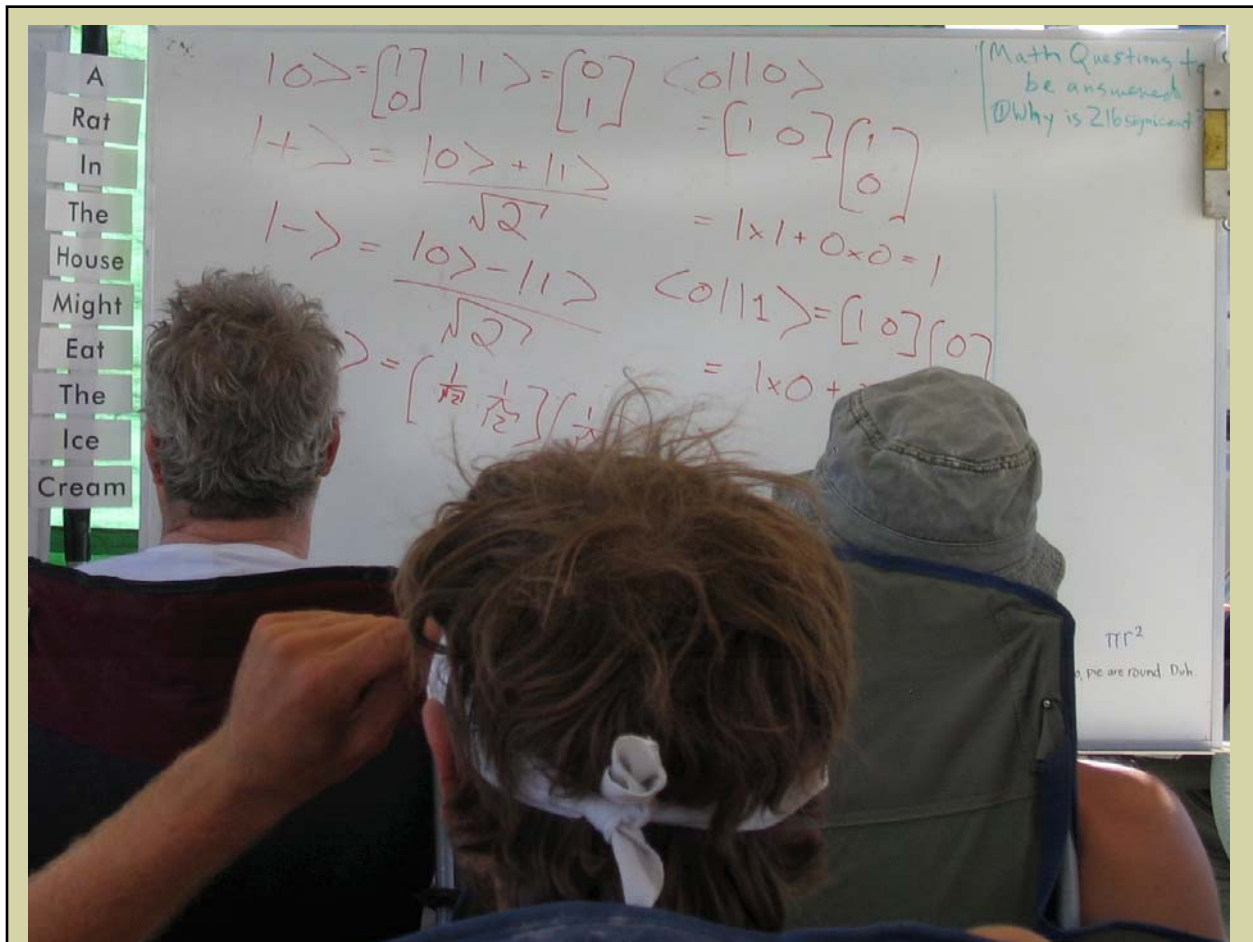 A
Rat
In
The
House
Might
Eat
The
Ice
Cream
|0> = [1 0] |1> = [0 1] <0||0>
= [1 0] [1 0]
|+> = |0> + |1> / √2
= 1x1 + 0x0 = 1
|-> = |0> - |1> / √2
<0||1> = [1 0] [0
> = [1/√2 1/√2] [1/√2
= 1x0 +
Math Questions to
be answered
① Why is 216 signicent?
πr²
, pie are round. Duh.